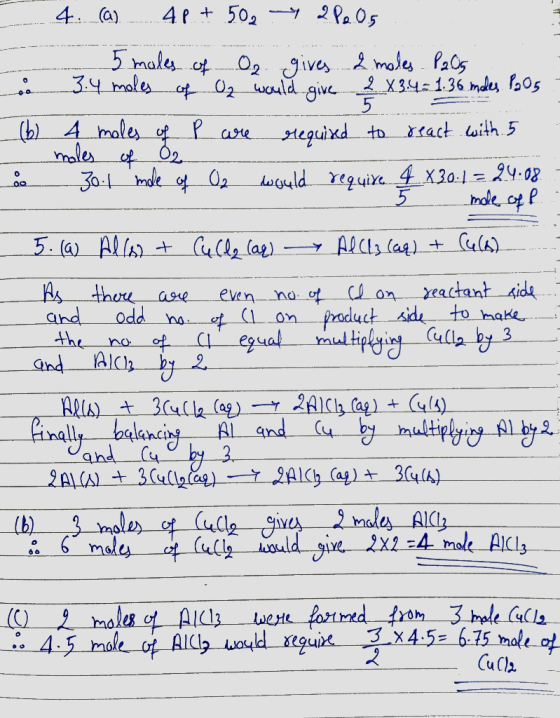 4. (a) 4P + 5O₂ → 2P₂O₅
5 moles of O₂ gives 2 moles P₂O₅
∴ 3.4 moles of O₂ would give 2/5 × 3.4 = 1.36 moles P₂O₅
(b) 4 moles of P are required to react with 5
moles of O₂
∴ 30.1 mole of O₂ would require 4/5 × 30.1 = 24.08
mole of P
5. (a) Al(s) + CuCl₂ (aq) → AlCl₃ (aq) + Cu(s)
As there are even no. of Cl on reactant side
and odd no. of Cl on product side to make
the no of Cl equal multiplying CuCl₂ by 3
and AlCl₃ by 2
Al(s) + 3CuCl₂ (aq) → 2AlCl₃ (aq) + Cu(s)
finally balancing Al and Cu by multiplying Al by 2
and Cu by 3.
2Al(s) + 3CuCl₂(aq) → 2AlCl₃ (aq) + 3Cu(s)
(b) 3 moles of CuCl₂ gives 2 moles AlCl₃
∴ 6 moles of CuCl₂ would give 2×2 = 4 mole AlCl₃
(C) 2 moles of AlCl₃ were formed from 3 mole CuCl₂
∴ 4.5 mole of AlCl₃ would require 3/2 × 4.5 = 6.75 mole of
CuCl₂